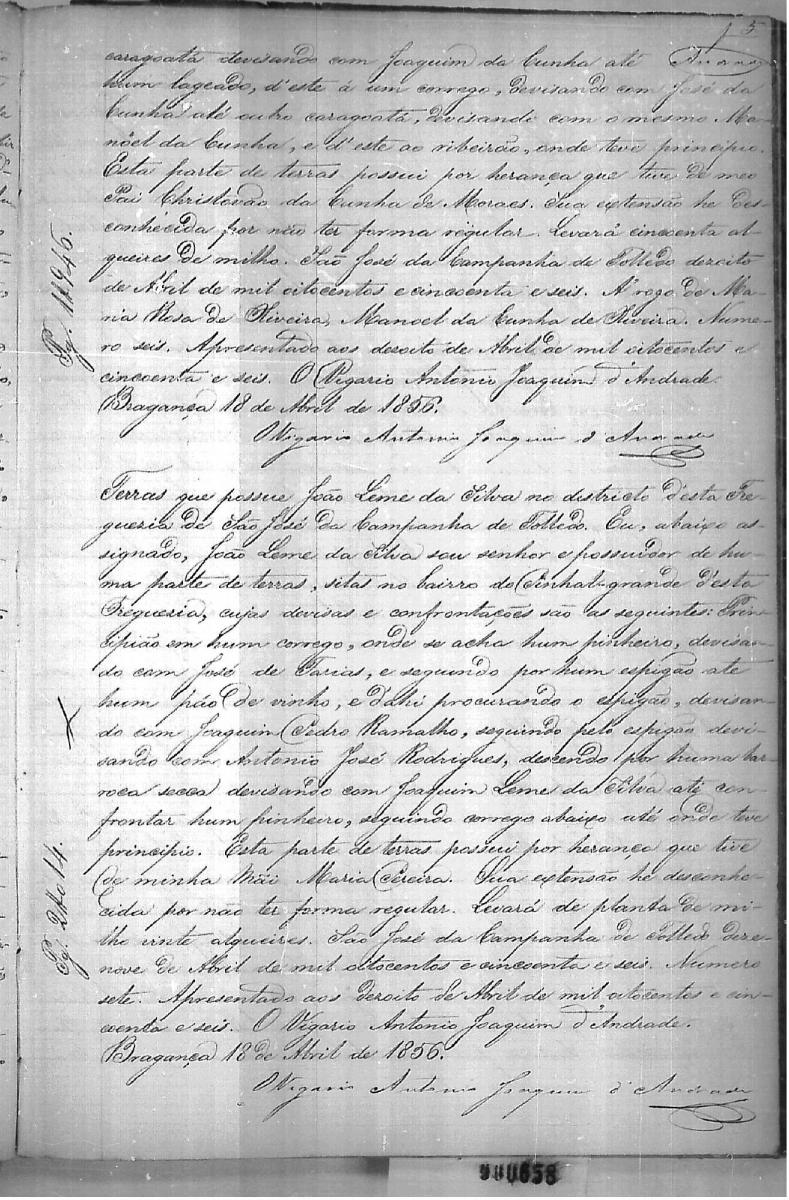 5
caragoatá devisando com Joaquim da Cunha até Andrade
hum lageado, d'este á um corrego, devisando com José da
Cunha até outro caragoatá, devisando com o mesmo Ma-
nöel da Cunha, e d'este ao ribeirão, onde teve principio.
Esta parte de terras possui por herança que tive de meo
Pai Christovão da Cunha de Moraes. Sua extensão he des-
conhecida por não ter forma regular. Levará cincoenta al-
queires de milho. São José da Campanha de Tolledo dezoito
de Abril de mil oitocentos e cincoenta e seis. A'rogo de Ma-
ria Rosa de Oliveira, Manoel da Cunha de Oliveira. Nume-
ro seis. Apresentado aos dezoito de Abril de mil oitocentos e
cincoenta e seis. O Vigario Antonio Joaquim d'Andrade.
Bragança 18 de Abril de 1856.
O Vigario Antonio Joaquim d'Andrade
Terras que possue João Leme da Silva no districto d'esta Fre-
gueria de São José da Campanha de Tolledo. Eu, abaixo as-
signado, João Leme da Silva sou senhor e possuidor de hu-
ma parte de terras, sitas no bairro do Pinhal-grande d'esta
Fregueria, cujas devisas e confrontações são as seguintes: Prin-
cipião em hum corrego, onde se acha hum pinheiro, devisan-
do com José de Farias, e seguindo por hum espigão até
hum páo de vinho, e d'ahi procurando o espigão, devisan-
do com Joaquim Pedro Ramalho, seguindo pelo espigão devi-
sando com Antonio José Rodrigues, descendo por huma bar-
roca secca devisando com Joaquim Leme da Silva até con-
frontar hum pinheiro, seguindo corrego abaixo até onde teve
principio. Esta parte de terras possui por herança que tive
de minha Mãi Maria Pereira. Sua extensão he desconhe-
cida por não ter forma regular. Levará de planta de mi-
lho vinte alqueires. São José da Campanha de Tolledo deze-
nove de Abril de mil oitocentos e cincoenta e seis. Numero
sete. Apresentado aos dezoito de Abril de mil oitocentos e cin-
coenta e seis. O Vigario Antonio Joaquim d'Andrade.
Bragança 18 de Abril de 1856.
O Vigario Antonio Joaquim d'Andrade